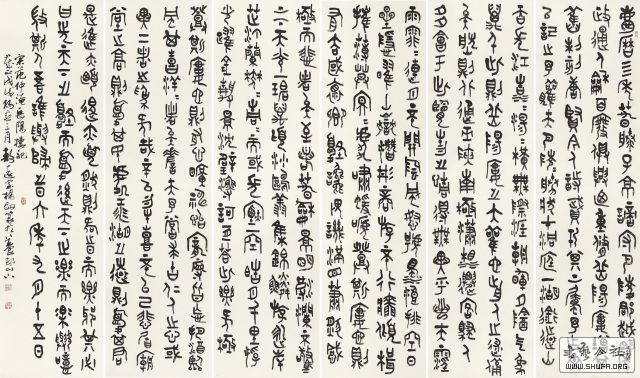 慶曆四年春滕子京謫守巴陵郡越明年
政通人和百廢具興乃重修岳陽樓增其
舊制刻唐賢今人詩賦于其上屬予作文
以記之予觀夫巴陵勝狀在洞庭一湖銜遠山
吞長江浩浩湯湯橫無際涯朝暉夕陰氣象
萬千此則岳陽樓之大觀也前人之述備
矣然則北通巫峽南極瀟湘遷客騷人
多會于此覽物之情得無異乎若夫霪
雨霏霏連月不開陰風怒號濁浪排空日
星隱曜山岳潛形商旅不行檣傾楫
摧薄暮冥冥虎嘯猿啼登斯樓也則
有去國懷鄉憂讒畏譏滿目蕭然感
極而悲者矣至若春和景明波瀾不驚
上下天光一碧萬頃沙鷗翔集錦鱗游泳岸
芷汀蘭郁郁青青而或長煙一空皓月千里浮
光躍金靜影沉璧漁歌互答此樂何極
登斯樓也則有心曠神怡寵辱皆忘把酒臨
風其喜洋洋者矣嗟夫予嘗求古仁人之心或
異二者之為何哉不以物喜不以己悲居廟
堂之高則憂其民處江湖之遠則憂其君
是進亦憂退亦憂然則何時而樂耶其必
曰先天下之憂而憂後天下之樂而樂噫
微斯人吾誰與歸時六年九月十五日
宋范仲淹岳陽樓記
書藝公社
WWW.SHUFA.ORG